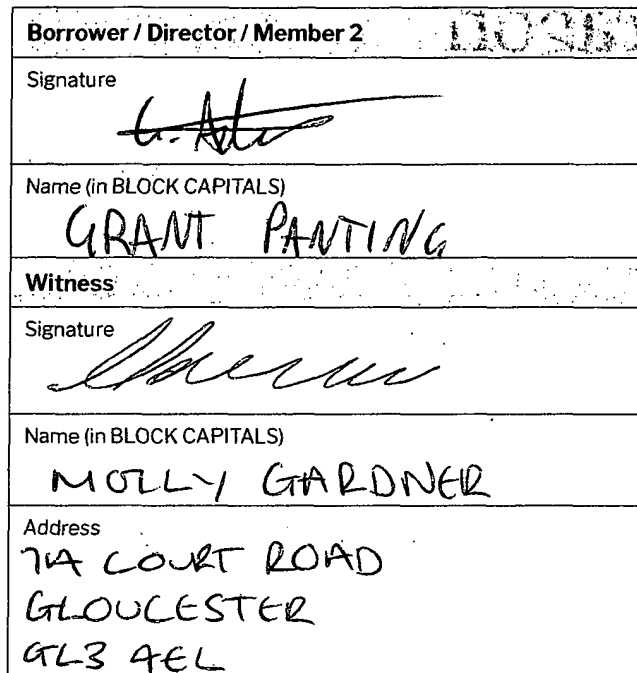 Borrower / Director / Member 2
Signature
Name (in BLOCK CAPITALS)
GRANT PANTING
Witness
Signature
Name (in BLOCK CAPITALS)
MOLLY GARDNER
Address
71A COURT ROAD
GLOUCESTER
GL3 4EL